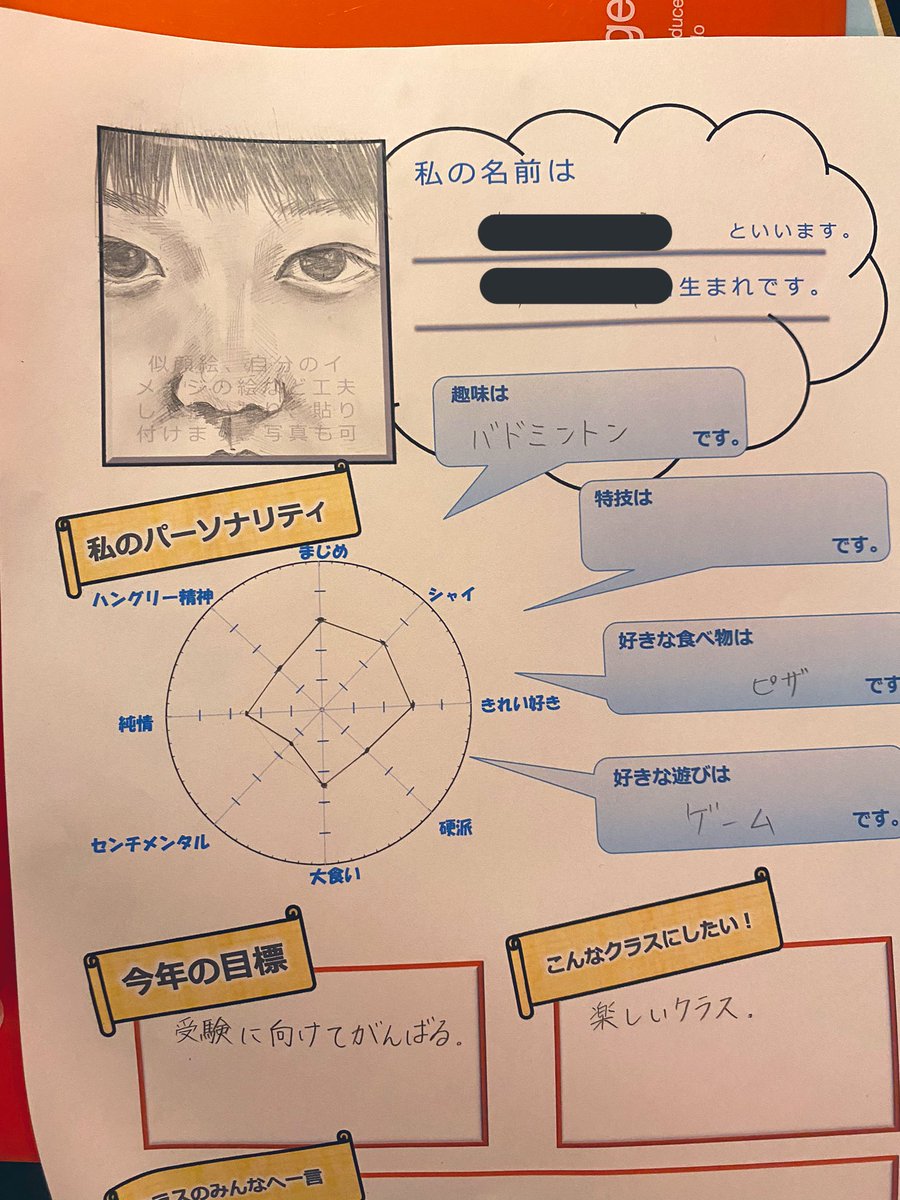 ge
duce
to
私の名前は
といいます。
生まれです。
似顔絵、自分のイ
メージの絵など工夫
して
貼り
付けます。写真も可
趣味は
バドミントン
です。
特技は
です。
好きな食べ物は
ピザ
です
好きな遊びは
ゲーム
です。
私のパーソナリティ
まじめ
シャイ
きれい好き
硬派
大食い
センチメンタル
純情
ハングリー精神
今年の目標
受験に向けてがんばる。
こんなクラスにしたい！
楽しいクラス。
ラスのみんなへ一言